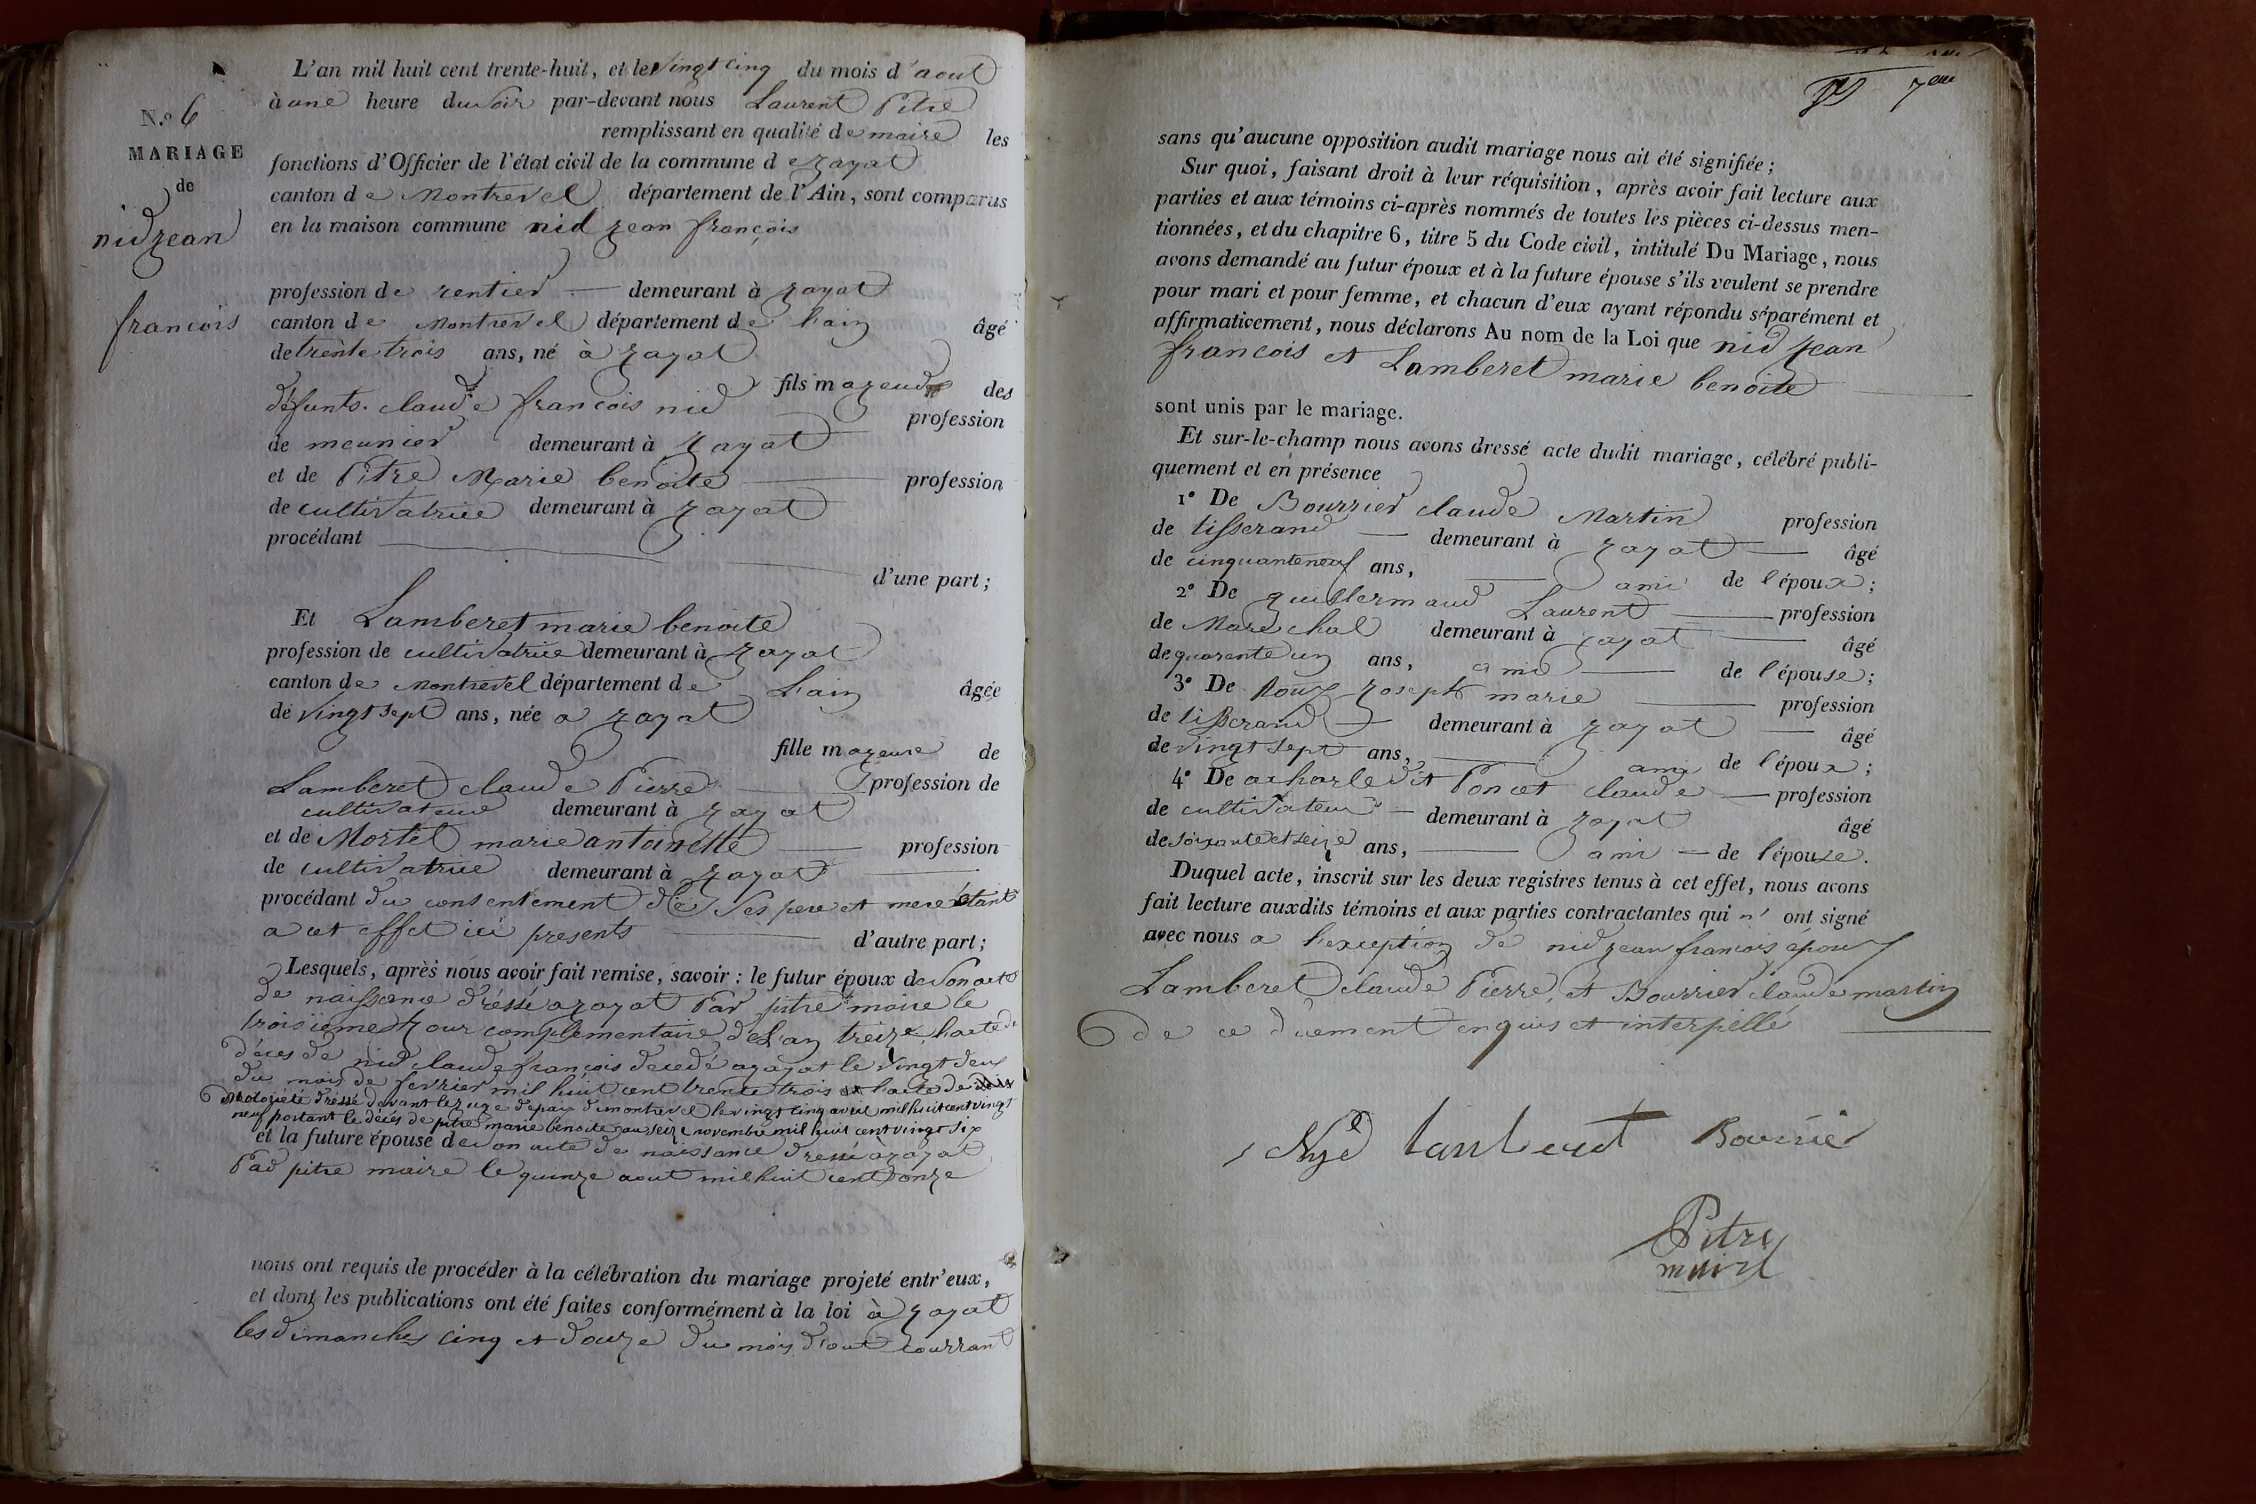 N.o 6
MARIAGE
de
nid jean
francois
L'an mil huit cent trente-huit, et le vingt cinq du mois d'aout
à une heure du soir par-devant nous Laurent Pitre
remplissant en qualité de maire les
fonctions d'Officier de l'état civil de la commune de jayat
canton de Montrevel département de l'Ain, sont comparus
en la maison commune nid jean françois
profession de rentier demeurant à jayat
canton de Montrevel département de l'ain âgé
de trente trois ans, né à jayat
fils majeur des
défunts claude françois nid profession
de meunier demeurant à jayat
et de Pitre Marie benoite profession
de cultivatrice demeurant à jayat
procédant
d'une part;
Et Lamberet marie benoite
profession de cultivatrice demeurant à jayat
canton de Montrevel département de l'ain âgée
de vingt sept ans, née a jayat
fille majeure de
Lamberet claude Pierre profession de
cultivateur demeurant à jayat
et de Mortel marie antoinette profession
de cultivatrice demeurant à jayat
procédant du consentement de ses pere et mere étant
a cet effet ici presents d'autre part;
Lesquels, après nous avoir fait remise, savoir: le futur époux de son acte
de naissance dréssé a jayat Par pitre maire le
troisieme jour complementaire de l'an treize, l'acte de
déces de nid claude françois decedé a jayat le vingt deux
du mois de fevrier mil huit cent trente trois l'acte de
notoriété dréssé devant le juge de paix de montrevel le vingt cinq avril mil huit cent vingt
neuf portant le décés de pitre marie benoite au seize novembre mil huit cent vingt six
et la future épouse de son acte de naissance dressé a jayat
Par pitre maire le quinze aout mil huit cent onze
nous ont requis de procéder à la célébration du mariage projeté entr'eux,
et dont les publications ont été faites conformément à la loi à jayat
les dimanches cinq et douze du mois d'aout courrant
7eme
sans qu'aucune opposition audit mariage nous ait été signifiée;
Sur quoi, faisant droit à leur réquisition, après avoir fait lecture aux
parties et aux témoins ci-après nommés de toutes les pièces ci-dessus men-
tionnées, et du chapitre 6, titre 5 du Code civil, intitulé Du Mariage, nous
avons demandé au futur époux et à la future épouse s'ils veulent se prendre
pour mari et pour femme, et chacun d'eux ayant répondu séparément et
affirmativement, nous déclarons Au nom de la Loi que nid jean
francois et Lamberet marie benoite
sont unis par le mariage.
Et sur-le-champ nous avons dressé acte dudit mariage, célébré publi-
quement et en présence
1° De Bourrier claude Martin profession
de tisserand demeurant à jayat âgé
de cinquante neuf ans, ami de l'époux;
2° De guillermaud Laurent profession
de Maréchal demeurant à jayat âgé
de quarente un ans, ami de l'épouse;
3° De Roux joseph marie profession
de tisserand demeurant à jayat âgé
de vingt sept ans, ami de l'époux;
4° De acharle dit Poncet claude profession
de cultivateur demeurant à jayat âgé
de soixante et seize ans, ami de l'épouse.
Duquel acte, inscrit sur les deux registres tenus à cet effet, nous avons
fait lecture auxdits témoins et aux parties contractantes qui n'ont signé
avec nous a l'exception de nid jean francois époux
Lamberet claude Pierre, et Bourrier claude martin
de ce duement enquis et interpellé
Bourrier
Pitre
maire